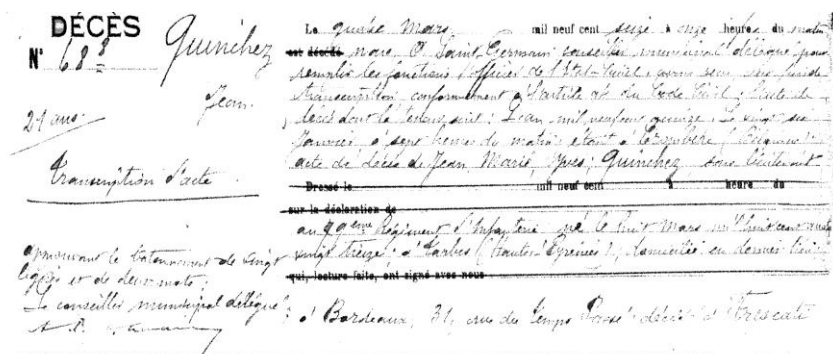 DÉCÈS
N° 688
Quinchez
Jean
21 ans
Transcription d'acte
approuvant le bâtonnement de vingt
lignes et de deux mots,
Le conseiller municipal délégué
Le quinze Mars mil neuf cent seize à onze heures du matin
est décédé nous St Germain conseiller municipal délégué pour
remplir les fonctions d'officier de l'État-Civil, avons
transcription conformément à l'article 94 du Code Civil, l'acte de
décès dont la teneur suit : L'an mil neuf cent quinze, le vingt six
Janvier à sept heures du matin, étant à
acte de décès de Jean Marie, Yves, Quinchez, sous lieutenant
Dressé le mil neuf cent à heure du
sur la déclaration de
au Régiment d'Infanterie né le huit Mars mil huit cent quatre
vingt treize, à Tarbes (Hautes Pyrénées), domicilié en dernier lieu
qui, lecture faite, ont signé avec nous
à Bordeaux, 31, rue du Temps Passé décédé à